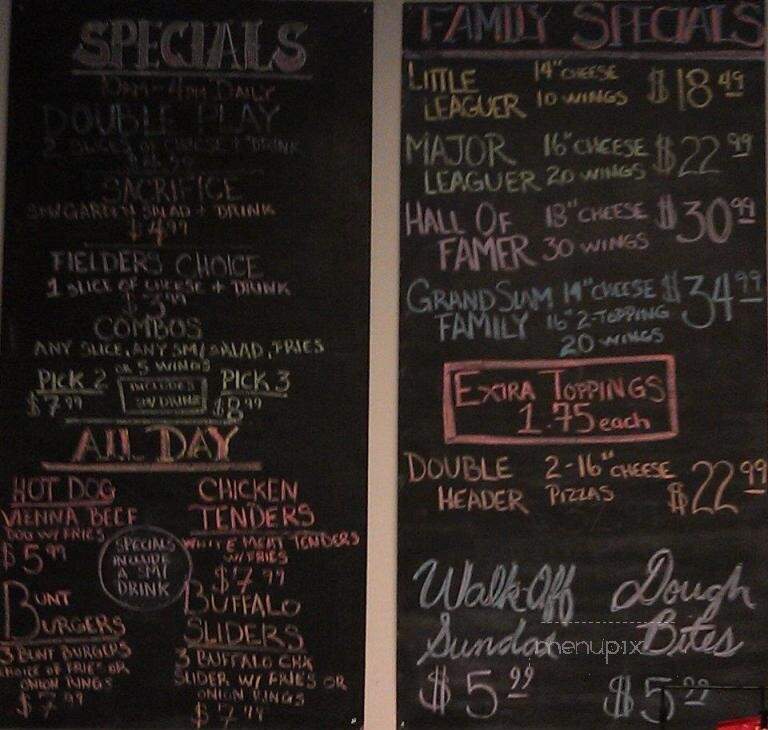 SPECIALS
10AM-4PM DAILY
DOUBLE PLAY
2 SLICES OF CHEESE + DRINK
SACRIFICE
SM/GARDEN SALAD + DRINK
$4.99
FIELDERS CHOICE
1 SLICE OF CHEESE + DRINK
$3.99
COMBOS
ANY SLICE, ANY SM/SALAD, FRIES
OR 5 WINGS
PICK 2
$7.99
INCLUDES
SM/DRINK
PICK 3
$8.99
ALL DAY
HOT DOG
VIENNA BEEF
DOG W/ FRIES
$5.99
CHICKEN
TENDERS
WHITE MEAT TENDERS
W/FRIES
$7.99
SPECIALS
INCLUDE
A SM/
DRINK
BUNT
BURGERS
3 BUNT BURGERS
CHOICE OF FRIES OR
ONION RINGS
$7.99
BUFFALO
SLIDERS
3 BUFFALO CHX
SLIDER W/ FRIES OR
ONION RINGS
$7.99
FAMILY SPECIALS
LITTLE LEAGUER
14" CHEESE
10 WINGS
$18.49
MAJOR LEAGUER
16" CHEESE
20 WINGS
$22.99
HALL OF FAMER
18" CHEESE
30 WINGS
$30.99
GRAND SLAM FAMILY
14" CHEESE
16" 2-TOPPING
20 WINGS
$34.99
EXTRA TOPPINGS
1.75 each
DOUBLE HEADER
2-16" CHEESE
PIZZAS
$22.99
Walk Off
Sundae
$5.99
Dough
Bites
$5.99
menupix